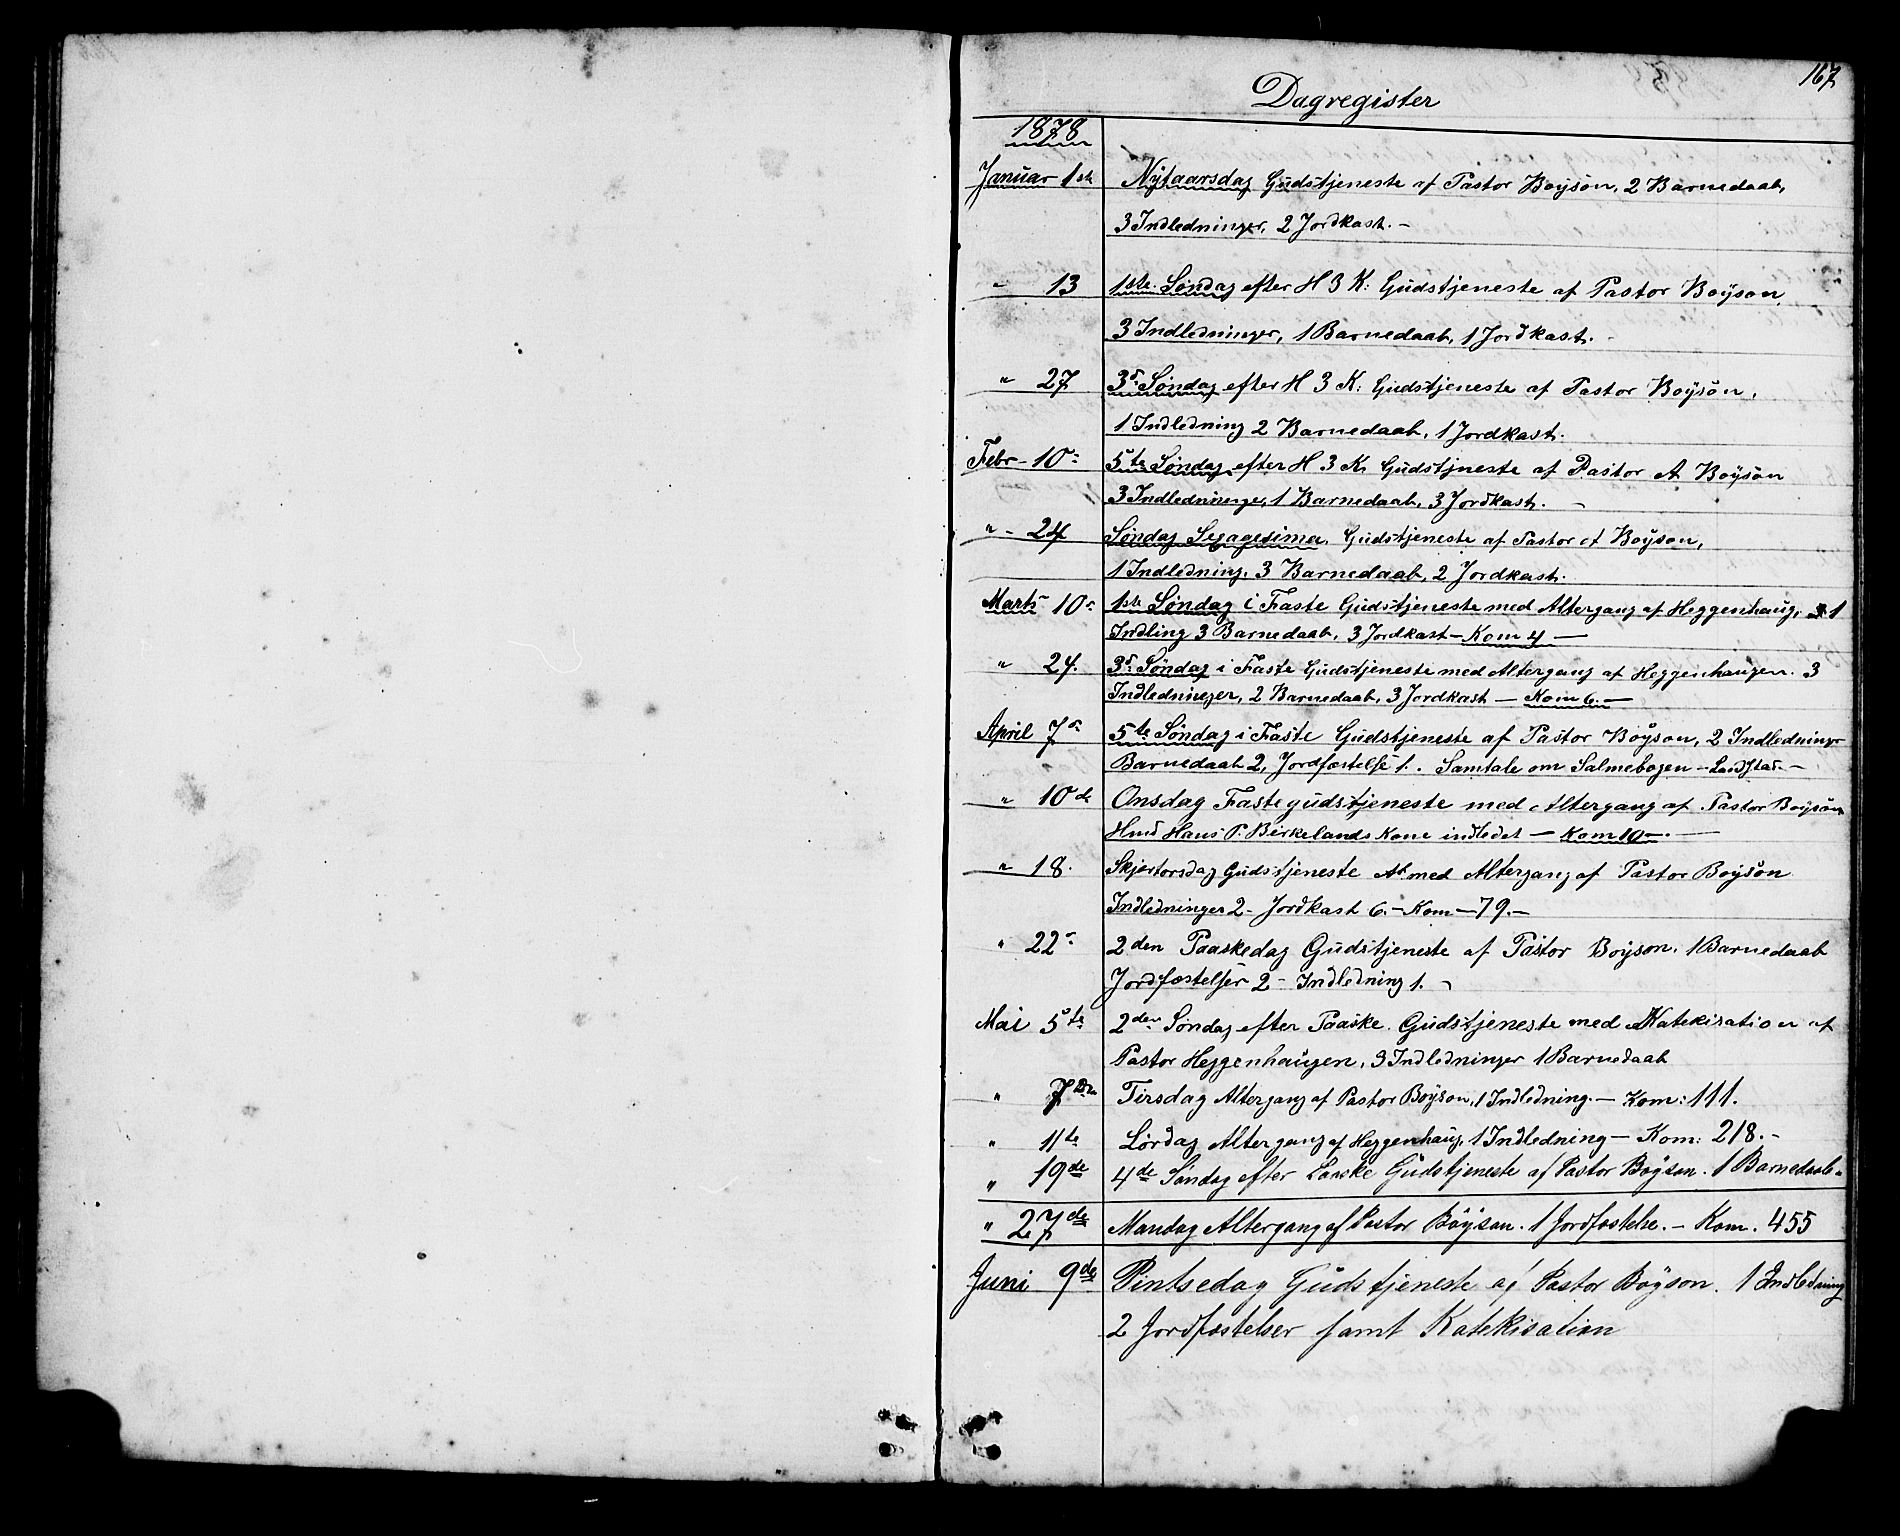 167
Dagregister
1878
Januar 1ste Nytaarsdag Gudstjeneste af Pastor Boyson, 2 Barnedaab,
3 Indledninger, 2 Jordkast. -
- 13 1ste Søndag efter H 3 K: Gudstjeneste af Pastor Boyson,
3 Indledninger, 1 Barnedaab, 1 Jordkast. -
" 27 3die Søndag efter H 3 K: Gudstjeneste af Pastor Boyson,
1 Indledning 2 Barnedaab, 1 Jordkast.
Febr - 10: 5te Søndag efter H 3 K. Gudstjneste af Pastor A Boyson
3 Indledninger, 1 Barnedaab, 3 Jordkast. -
" - 24 Søndag Sexagesima. Gudstjeneste af Pastor A Boyson,
1 Indledning, 3 Barnedaab, 2 Jordkast.
Marts 10 1ste Søndag i Faste Gudstjeneste med Altergang af Heggenhaug, 1
Indling 3 Barnedaab, 3 Jordkast - Kom 4 -
" 24. 3 Søndag i Faste Gudstjeneste med Altergang af Heggenhaugen. 3
Indledninger, 2 Barnedaab, 3 Jordkast - Kom 6. -
April 7 5te Søndag i Faste Gudstjeneste af Pastor Boyson, 2 Indledninger
Barnedaab 2, Jordfæstelse 1. Samtale om Salmebogen - Landstad. -
" 10de Onsdag Fastegudstjeneste med Altergang af Pastor Boyson
Hmd Hans P. Birkelands Kone indledet - Kom 10 -. -
" 18. Skjertorsdag Gudstjeneste med Altergang af Pastor Boyson
Indledninger 2 - Jordkast 6. - Kom - 79. -
" 22 2den Paaskedag Gudstjeneste af Pastor Boyson. 1 Barnedaab
Jordfæstelser 2 - Indledning 1. -
Mai 5te 2den Søndag efter Paaske. Gudstjeneste med Katekisation af
Pastor Heggenhaugen, 3 Indledninger 1 Barnedaab
" 7de Tirsdag Altergang af Pastor Boyson, 1 Indledning. - Kom: 111.
" 11te Lørdag Altergang af Heggenhaug, 1 Indledning - Kom: 218. -
" 19de 4de Søndag efter Paaske Gudstjeneste af Pastor Boyson. 1 Barnedaab.
" 27de Mandag Altergang af Pastor Böyson. 1 Jordfæstelse. - Kom. 455
Juni 9de Pintsedag Gudstjeneste af Pastor Boyson. 1 Indledning
2 Jordfæstelser samt Katekisation